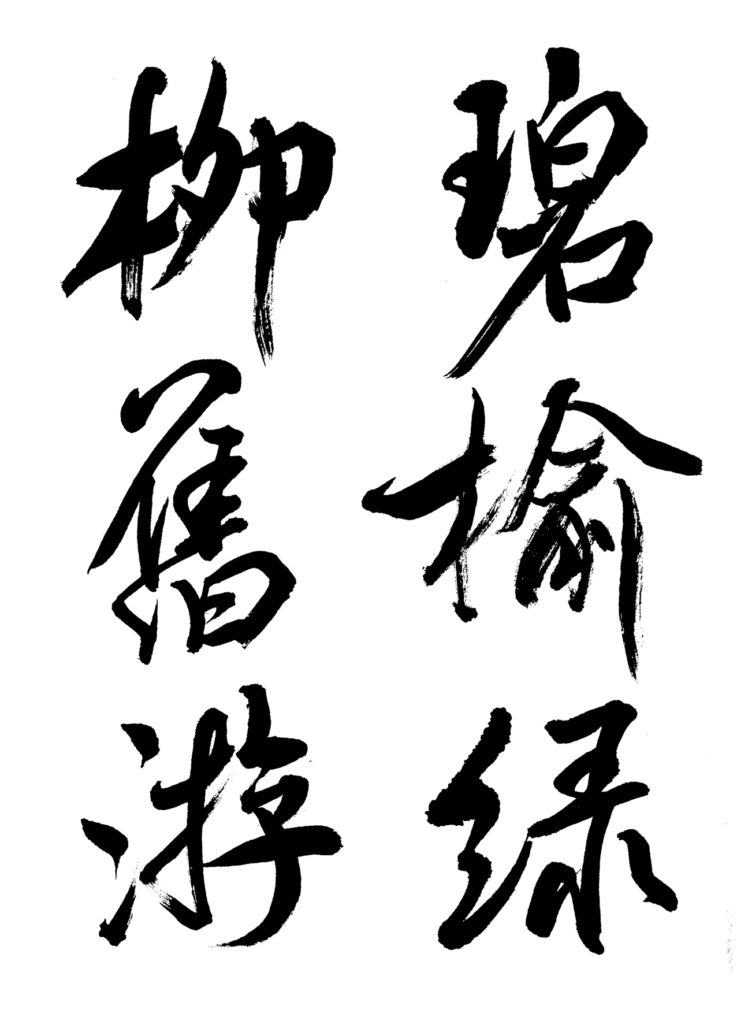 碧榆绿
柳舊游